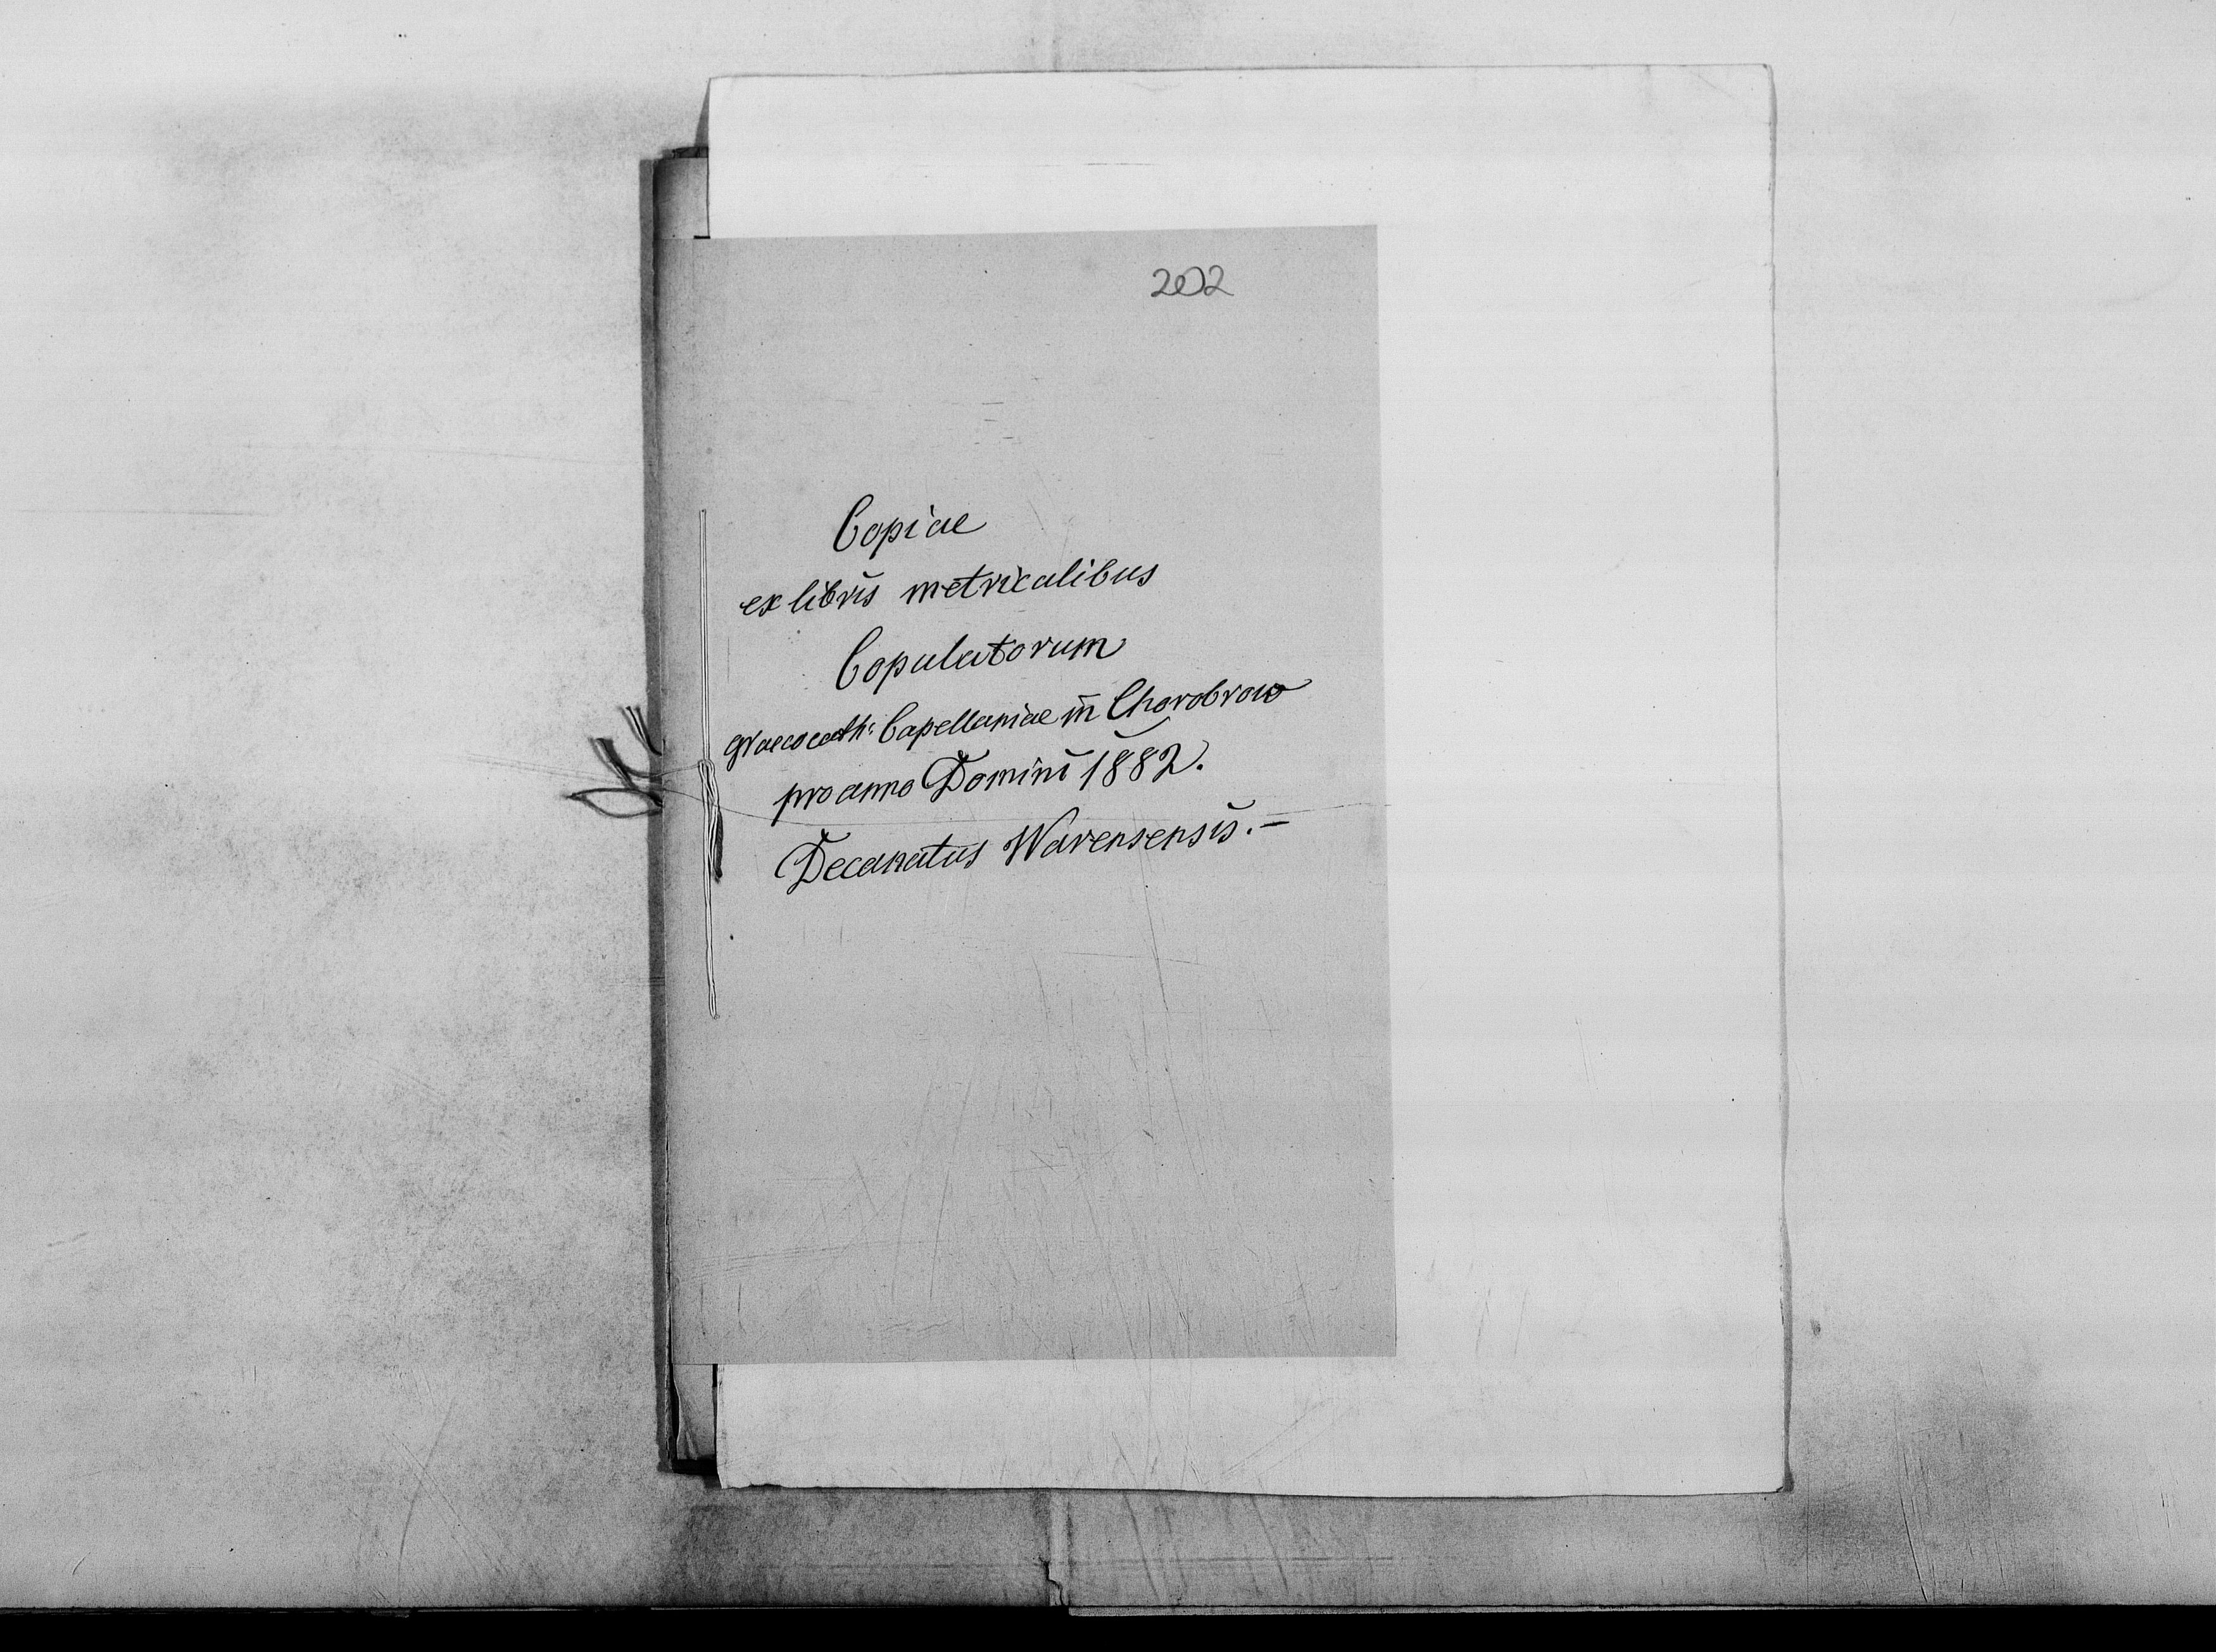 202
Copiae
ex libris metricalibus
Copulatorum
graecocath: Capellaniae in Chorobrow
pro anno Domini 1882.
Decanatus Warensensis.-